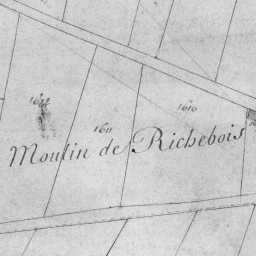 1610
1611
Moulin de Richebois